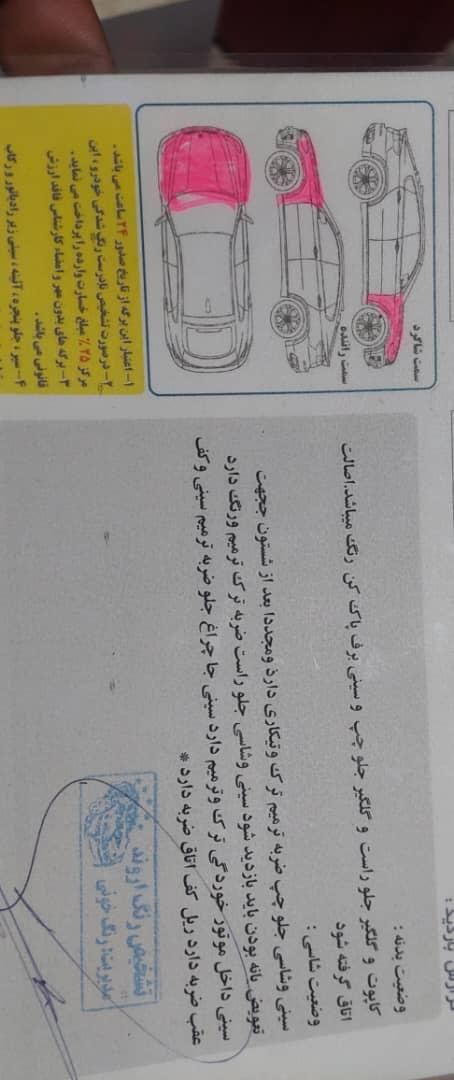 گزارش بازدید :
وضعیت بدنه :
کاپوت و گلگیر جلو راست و گلگیر جلو چپ و سینی برف پاک کن رنگ میباشد.اصالت
اتاق گرفته شود
وضعیت شاسی :
سینی وشاسی جلو چپ ضربه ترمیم ترک وتیکاری دارد ومجددا بعد از شستون ججهت
تعویض یانه بودن باید بازدید شود سینی وشاسی جلو راست ضربه ترک ترمیم ورنگ دارد
سینی داخل موتور خوردگی ترک وترمیم دارد سینی جا چراغ جلو ضربه ترمیم سینی وکف
عقب ضربه دارد ریل کف اتاق ضربه دارد *
سمت شاگرد
سمت راننده
۱- اعتبار این برگه از تاریخ صدور ۲۴ ساعت می باشد.
۲- درصورت تشخیص نادرست رنگ شدگی خودرو ، این
مرکز ۲۵٪ مبلغ خسارت وارده را پرداخت می نماید.
۳- برگه های بدون مهر و امضاء کارشناس فاقد ارزش
قانونی می باشد.
۴- سپر ، جلو پنجره ، آئینه ، سینی زیر رادیاتور و رکاب
تشخیص رنگ اروند
مدیریت: رنگ خونی